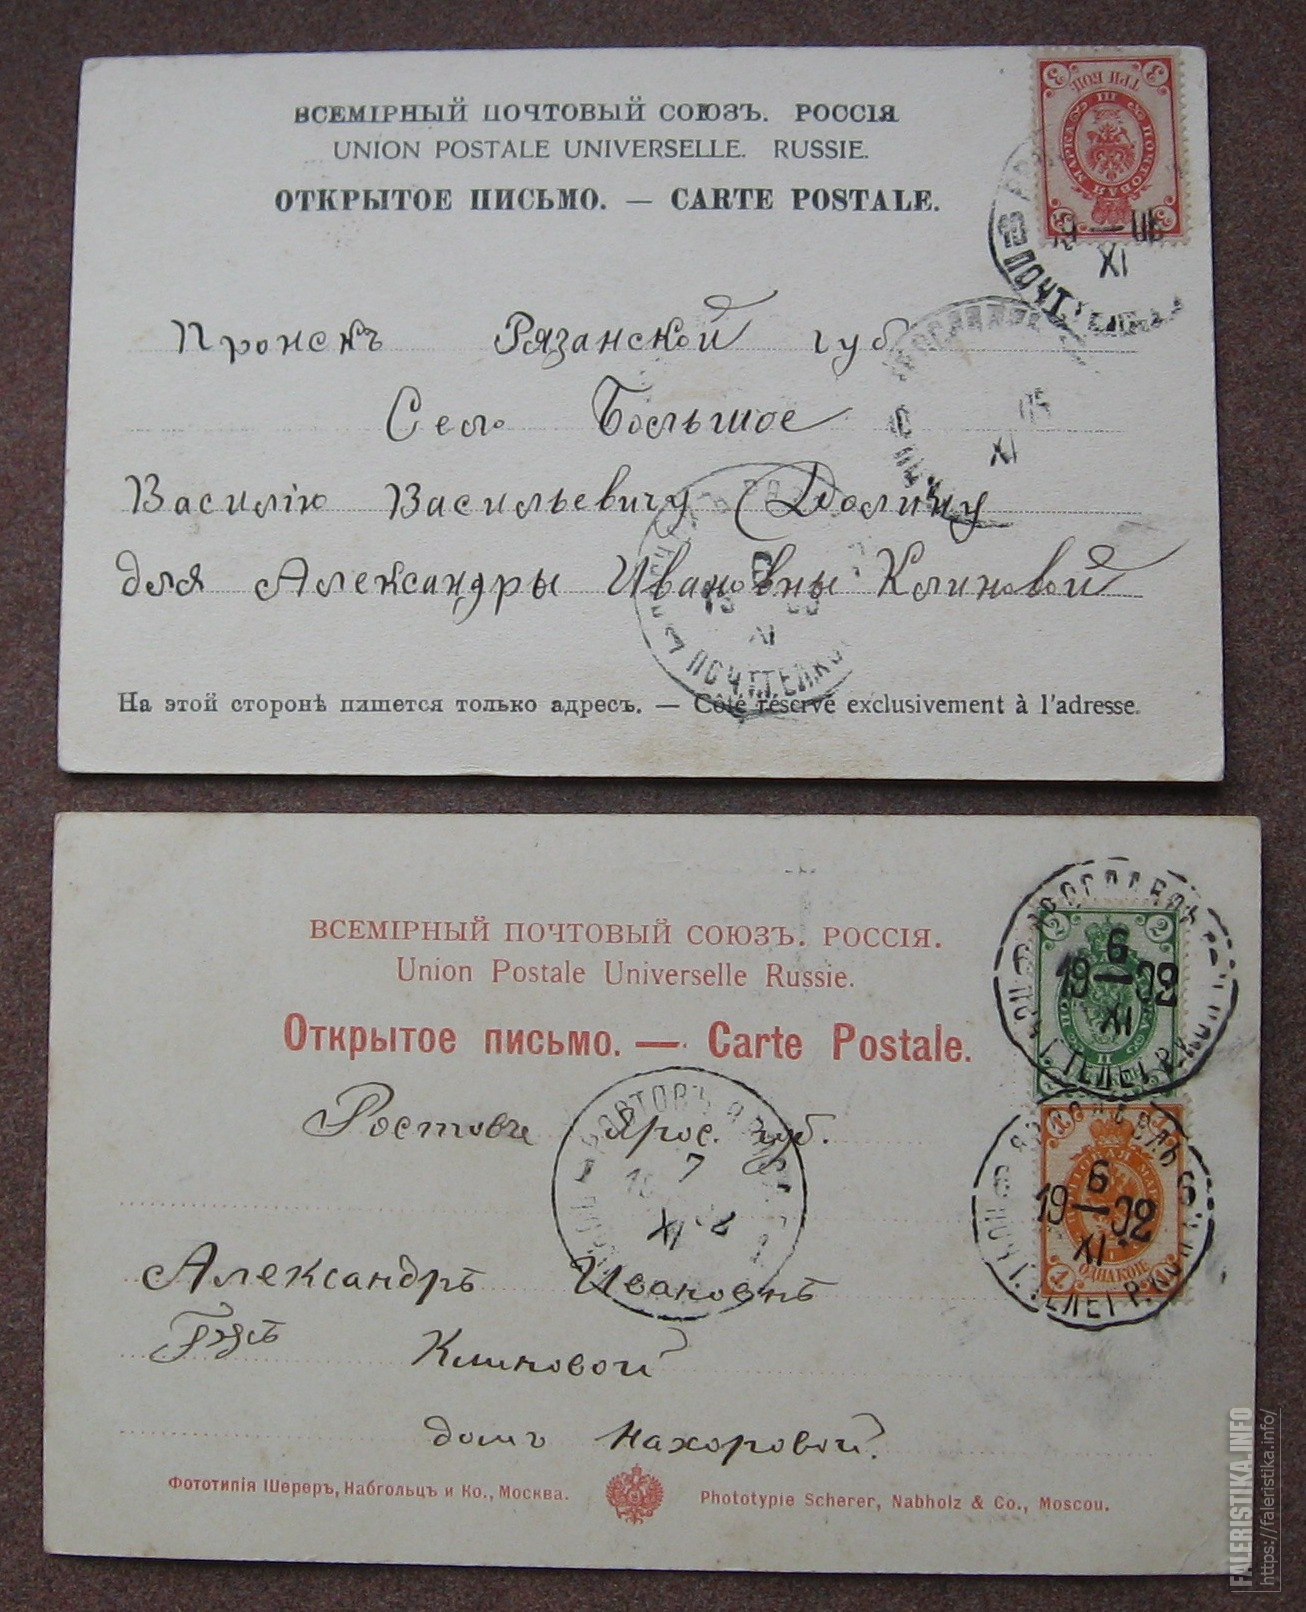 ВСЕМІРНЫЙ ПОЧТОВЫЙ СОЮЗЪ. РОССІЯ
UNION POSTALE UNIVERSELLE. RUSSIE.
ОТКРЫТОЕ ПИСЬМО. — CARTE POSTALE.
3 ТРИ КОП. 3
ПОЧТОВАЯ МАРКА
3 3
XI
ПОЧТ.
Пронскъ Рязанской губ
Село Большое
XI
Василію Васильевичу Долину
для Александры Ивановны Клиновой
XI
ПОЧ.Т.ТЕЛ.К
На этой сторонѣ пишется только адресъ. — Côté réservé exclusivement à l'adresse.
ВСЕМІРНЫЙ ПОЧТОВЫЙ СОЮЗЪ. РОССІЯ.
Union Postale Universelle Russie.
Открытое письмо. — Carte Postale.
2 2
6
19—02
XI
Ростовъ Ярос. губ.
РОСТОВЪ
7
XI
1
6
19—02
XI
ОДНА КОП.
1
Александрѣ Ивановнѣ
Клиновой
домъ Нахоровой.
Фототипія Шереръ, Набгольцъ и Ко., Москва.
Phototypie Scherer, Nabholz & Co., Moscou.
FALERISTIKA.INFO
https://faleristika.info/